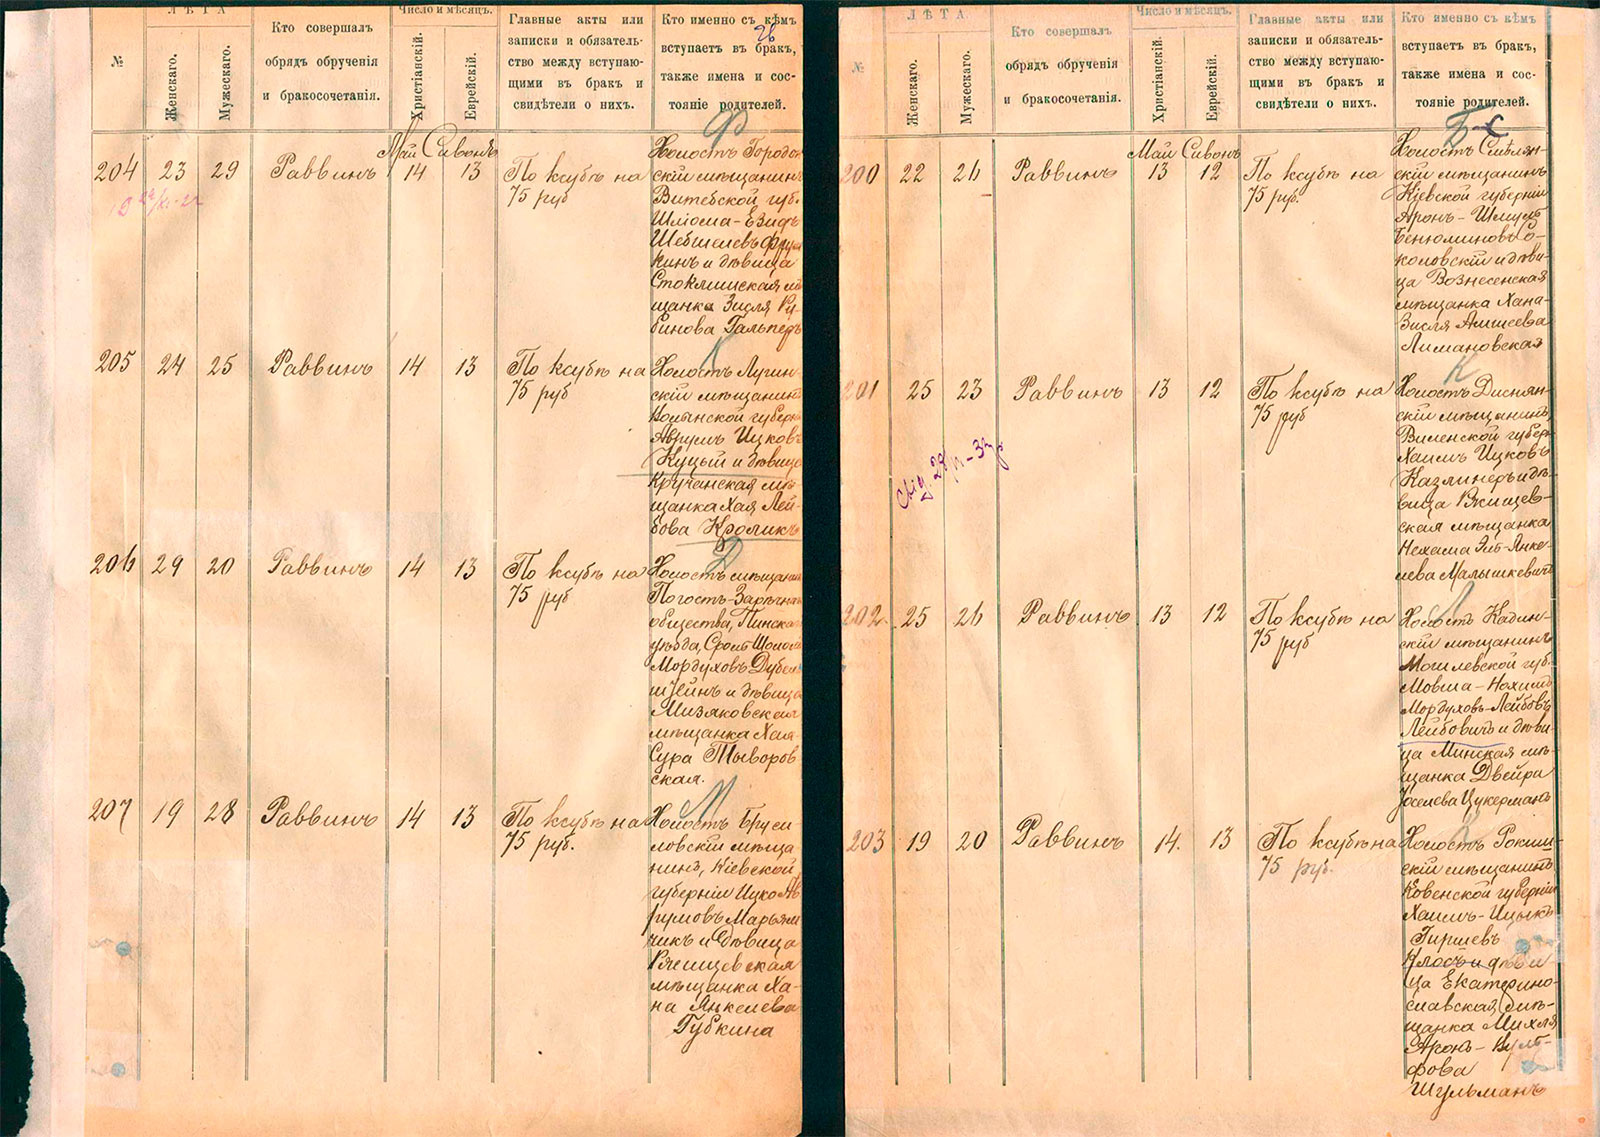 ЛѢТА
Число и мѣсяцъ.
№
Женскаго.
Мужескаго.
Кто совершалъ
обрядъ обрученія
и бракосочетанія.
Христіанскій.
Еврейскій.
Главные акты или
записки и обязатель-
ство между вступаю-
щими въ бракъ и
свидѣтели о нихъ.
Кто именно съ кѣмъ
вступаетъ въ бракъ,
также имена и сос-
тояніе родителей.
26
Ф
Май Сивонъ
204 23 29 Раввинъ 14 13
По ксубѣ на
75 руб
Холостъ Городок
скій мѣщанинъ
Витебской губ.
Шлiома-Езидъ
Шебшелевъ Фрум
кинъ и дѣвица
Стоклишская мѣ
щанка Зисля Ру-
бинова Гальперъ
205 24 25 Раввинъ 14 13
По ксубѣ на
75 руб
К
Холостъ Лугин-
скій мѣщанинъ
Волынской губерн
Аврумъ Ицковъ
Куцый и дѣвица
Кручанская мѣ-
щанка Хая Лей-
бова Кроликъ
206 29 20 Раввинъ 14 13
По ксубѣ на
75 руб
Д
Холостъ мѣщанин
Погостъ-Зарѣчна
общества, Пинска
уѣзда, Сроль Шолом
Мордуховъ Дубел
штейнъ и дѣвица
Мизяковская
мѣщанка Хая-
Сура Тыворов
ская.
207 19 28 Раввинъ 14 13
По ксубѣ на
75 руб.
М
Холостъ Бруси-
ловскій мѣща-
нинъ, Кіевской
губерніи Ицко Ав
румовъ Марьям
чикъ и дѣвица
Рѣчицевская
мѣщанка Ха-
на Янкелева
Губкина
ЛѢТА
Число и мѣсяцъ.
№
Женскаго.
Мужескаго.
Кто совершалъ
обрядъ обрученія
и бракосочетанія.
Христіанскій.
Еврейскій.
Главные акты или
записки и обязатель-
ство между вступаю-
щими въ бракъ и
свидѣтели о нихъ.
Кто именно съ кѣмъ
вступаетъ въ бракъ,
также имена и сос-
тояніе родителей.
С
Май Сивонъ
200 22 26 Раввинъ 13 12
По ксубѣ на
75 руб.
Холостъ Смѣлян-
скій мѣщанинъ
Кіевской губерніи
Аронъ-Шмуль
Бенюминовъ Со-
коловскій и дѣви-
ца Вознесенская
мѣщанка Хана-
Зисля Амшеева
Лимановская
201 25 23 Раввинъ 13 12
По ксубѣ на
75 руб
К
Холостъ Диснян-
скій мѣщанинъ
Виленской губерн
Хаимъ Ицковъ
Казлинеръ и дѣ-
вица Ржищев-
ская мѣщанка
Нехама Эль-Янке-
лева Малышкевичъ
202 25 26 Раввинъ 13 12
По ксубѣ на
75 руб
Л
Холостъ Кадин-
скій мѣщанинъ
Могилевской губ.
Мовша-Нохимъ
Мордуховъ-Лейбовъ
Лейбовичъ и дѣви
ца Минская мѣ-
щанка Двейра
Іоселева Цукерманъ
203 19 20 Раввинъ 14. 13
По ксубѣ на
75 руб.
К
Холостъ Рокиш-
скій мѣщанинъ
Ковенской губерніи
Хаимъ-Ицыкъ
Гиршевъ
Клосъ и дѣви
ца Екатерино-
славская мѣ-
щанка Михля
Аронъ-Вуль-
фова
Шульманъ